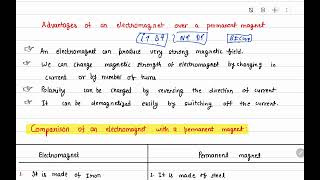 Advantages of an electromagnet over a permanent magnet
An electromagnet can produce very strong magnetic field.
We can change magnetic strength of electromagnet by changing in
current or by number of turns
Polarity can be changed by reversing the direction of current.
It can be demagnetized easily by switching off the current.
Comparison of an electromagnet with a permanent magnet
Electromagnet Permanent magnet
1. It is made of Iron 1. It is made of steel